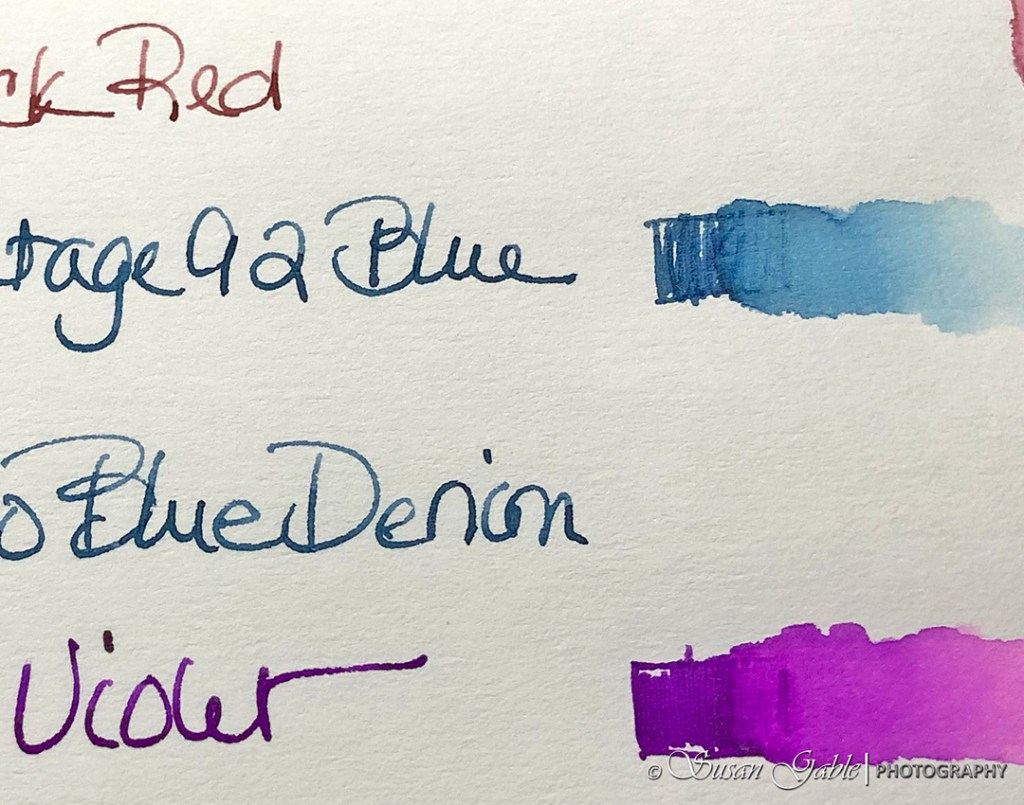 ck Red
tage 92 Blue
o Blue Denim
Violet
© Susan Gable | PHOTOGRAPHY